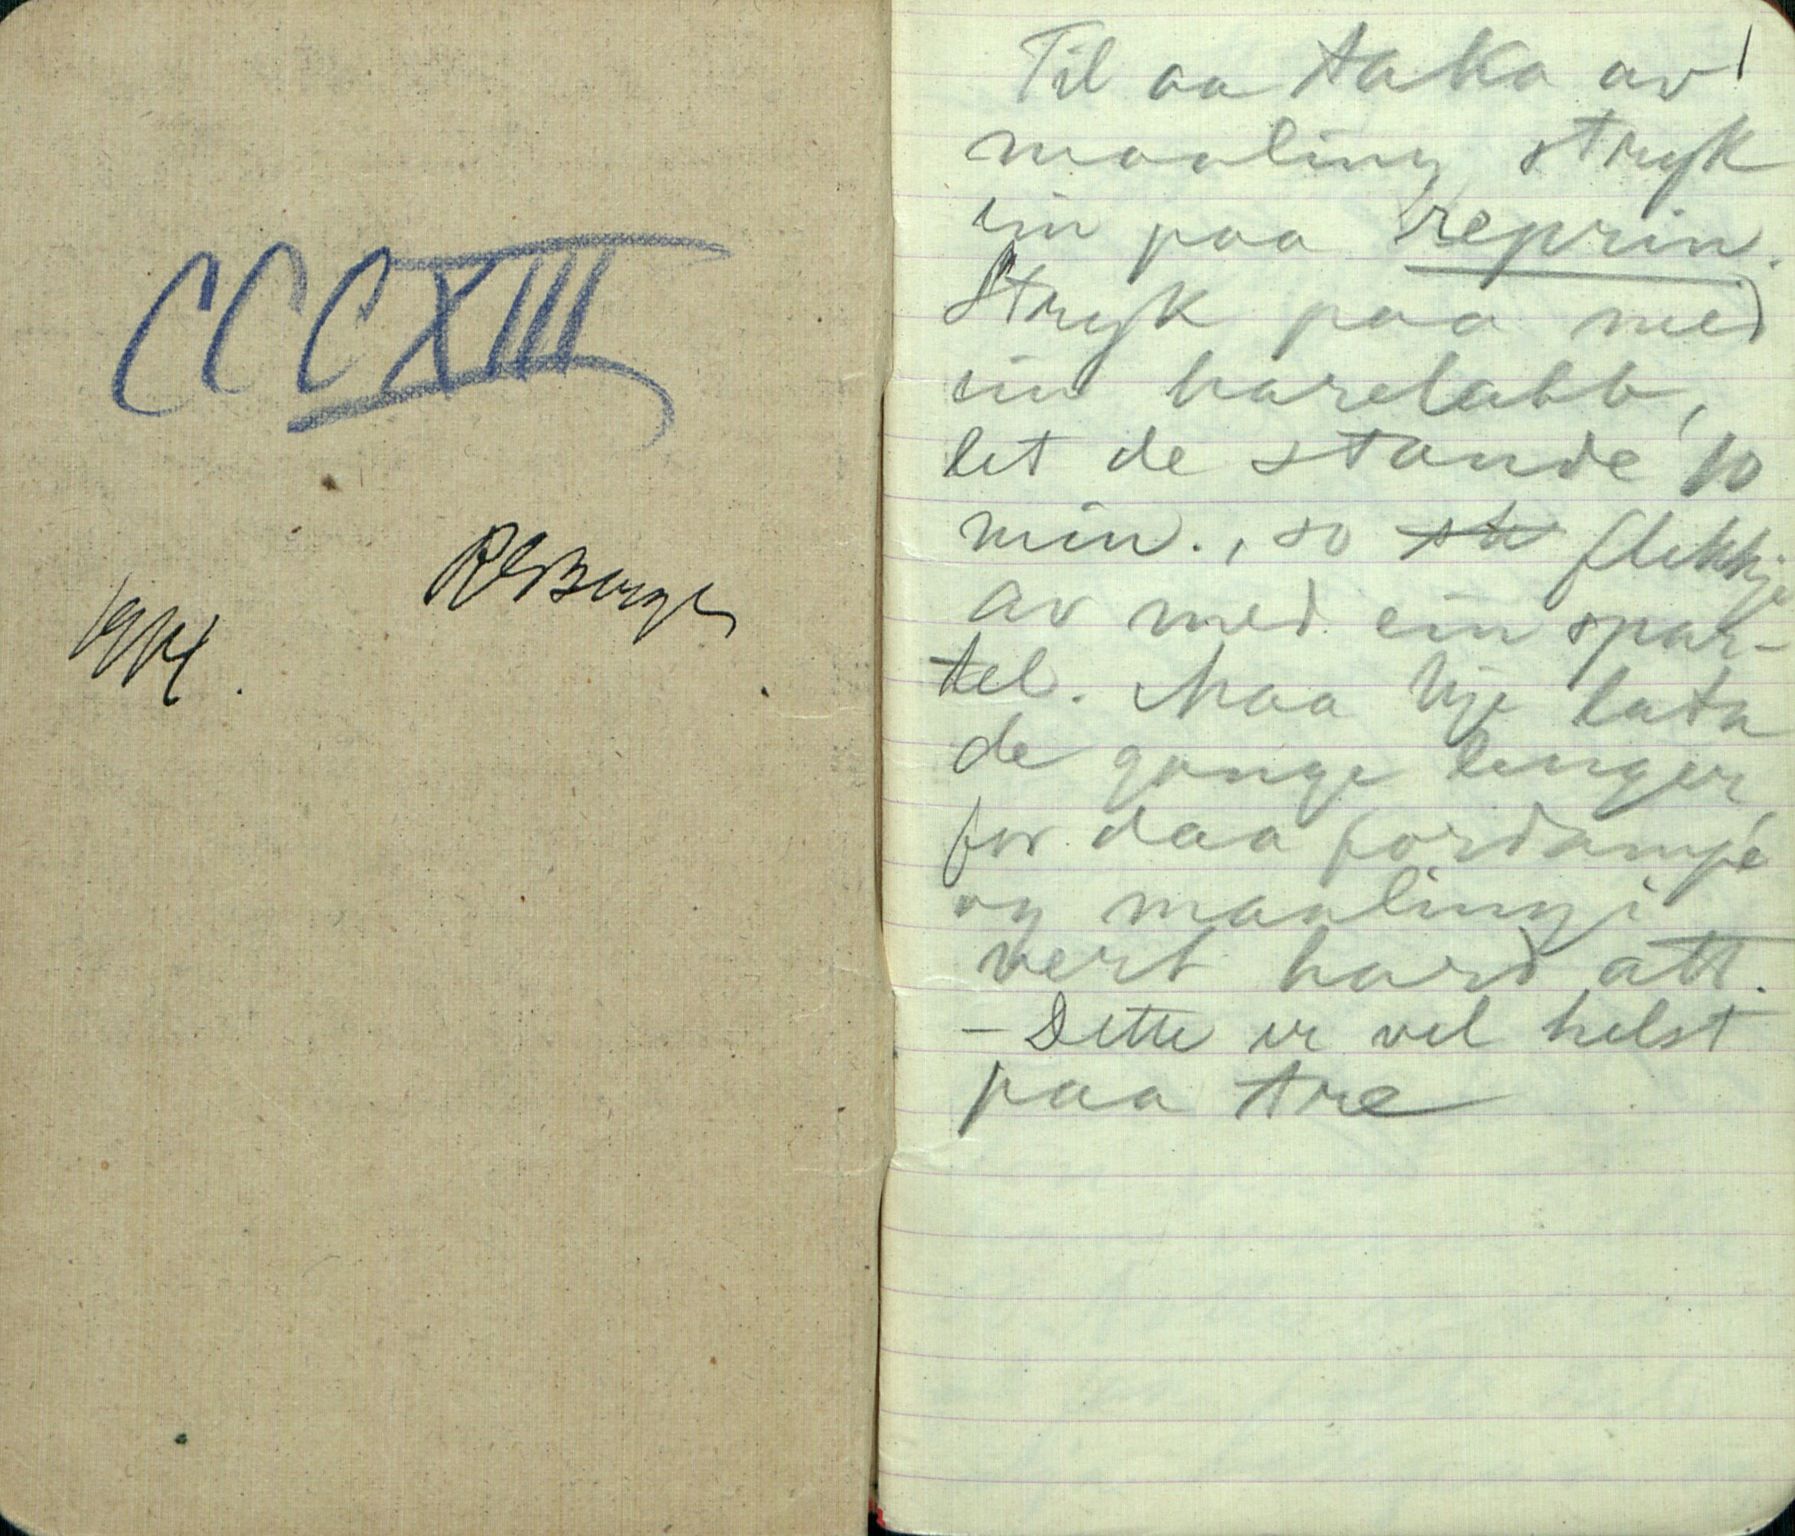 CCCXIII
RBerge
1
Til aa taka av
maaling stryk
ein paa reprin.
Stryk paa med
ein harelabb,
let de stande 10
min., so flekkje
av med ein spar-
tel. Maa kje lata
de gange lenger,
for daa fordampe
og maalingji
vert hard att.
– Dette er vel helst
paa tre